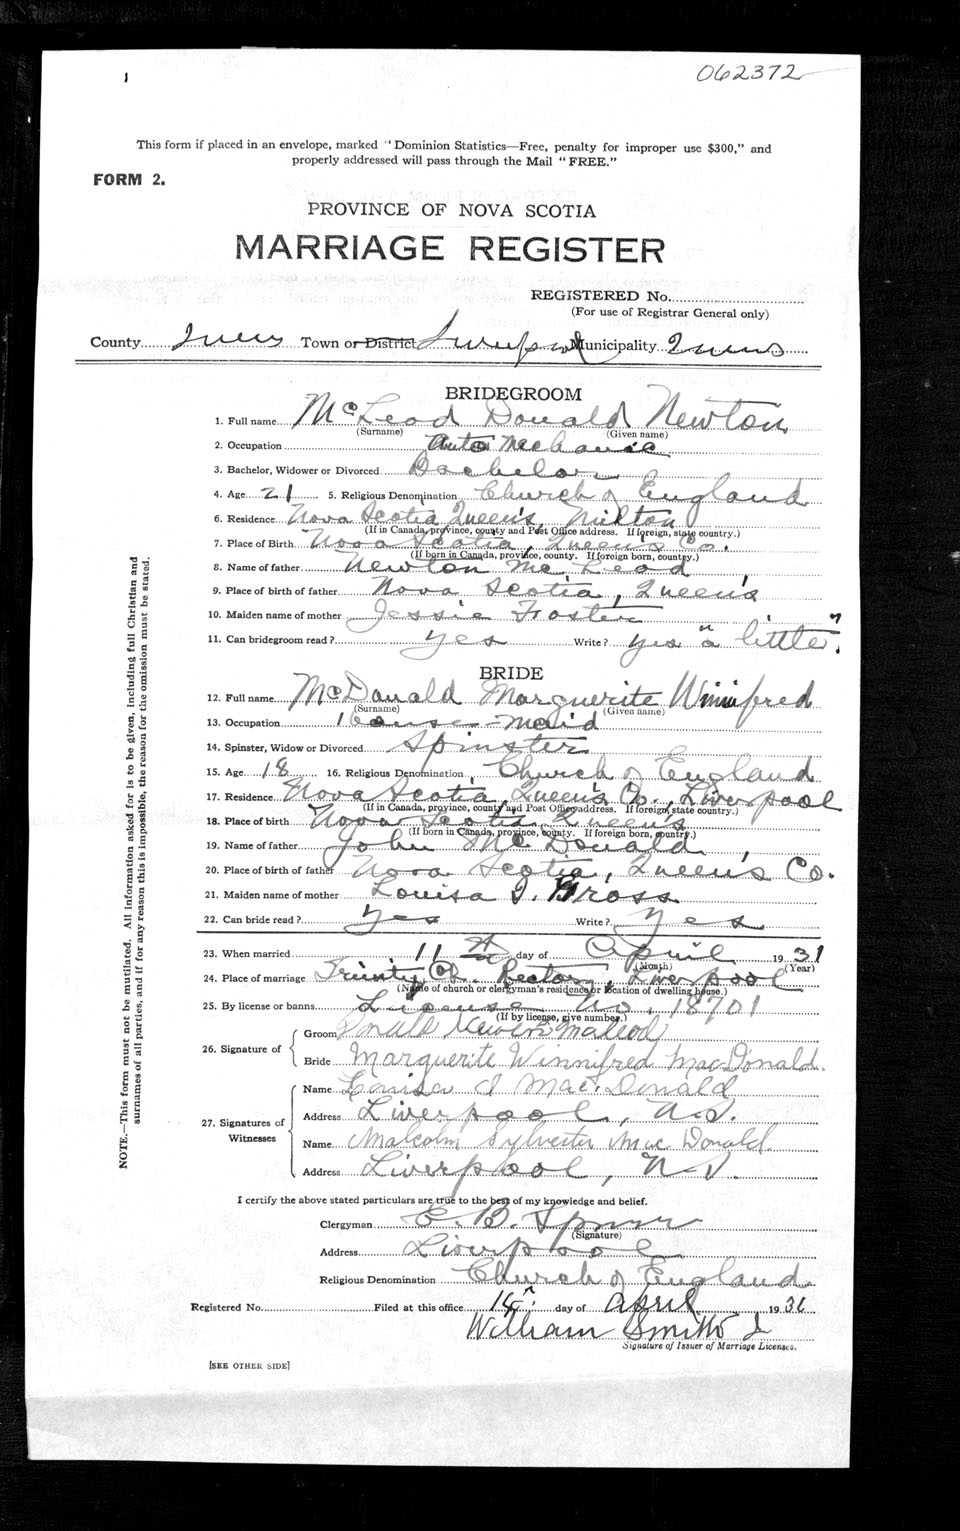 062372
This form if placed in an envelope, marked "Dominion Statistics—Free, penalty for improper use $300," and
properly addressed will pass through the Mail "FREE."
FORM 2.
PROVINCE OF NOVA SCOTIA
MARRIAGE REGISTER
REGISTERED No.
(For use of Registrar General only)
County Queens Town or District Liverpool Municipality Queens
BRIDEGROOM
1. Full name McLeod Donald Newton
(Surname) (Given name)
2. Occupation Auto Mechanic
3. Bachelor, Widower or Divorced Bachelor
4. Age 21 5. Religious Denomination Church of England
6. Residence Nova Scotia Queen's Milton
(If in Canada, province, county and Post Office address. If foreign, state country.)
7. Place of Birth Nova Scotia, Queen's Co.
(If born in Canada, province, county. If foreign born, country.)
8. Name of father Newton McLeod
9. Place of birth of father Nova Scotia, Queen's
10. Maiden name of mother Jessie Foster
11. Can bridegroom read? yes Write? yes "a little".
BRIDE
12. Full name McDonald Marguerite Winnifred
(Surname) (Given name)
13. Occupation House-maid
14. Spinster, Widow or Divorced Spinster
15. Age 18 16. Religious Denomination Church of England
17. Residence Nova Scotia, Queen's Co., Liverpool
(If in Canada, province, county and Post Office address. If foreign, state country.)
18. Place of birth Nova Scotia Queens
(If born in Canada, province, county. If foreign born, country.)
19. Name of father John McDonald
20. Place of birth of father Nova Scotia, Queen's Co.
21. Maiden name of mother Louisa J. Gross
22. Can bride read? Yes Write? Yes
23. When married 11th day of April 1931
(Month) (Year)
24. Place of marriage Trinity Ch. Rectory, Liverpool
(Name of church or clergyman's residence or location of dwelling house.)
25. By license or banns License No. 18701
(If by license, give number.)
26. Signature of
Groom Donald Newton McLeod
Bride Marguerite Winnifred MacDonald.
27. Signatures of Witnesses
Name Louisa J MacDonald
Address Liverpool, N.S.
Name Malcolm Sylvester MacDonald
Address Liverpool, N.S.
I certify the above stated particulars are true to the best of my knowledge and belief.
Clergyman E. B. Spurr
(Signature)
Address Liverpool
Religious Denomination Church of England
Registered No. Filed at this office day of April 1931
William Smith
Signature of Issuer of Marriage Licenses.
[SEE OTHER SIDE]
NOTE.—This form must not be mutilated. All information asked for is to be given, including full Christian and
surnames of all parties, and if for any reason this is impossible, the reason for the omission must be stated.